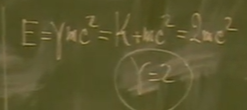 E=γmc²=K+mc²=2mc²
γ=2